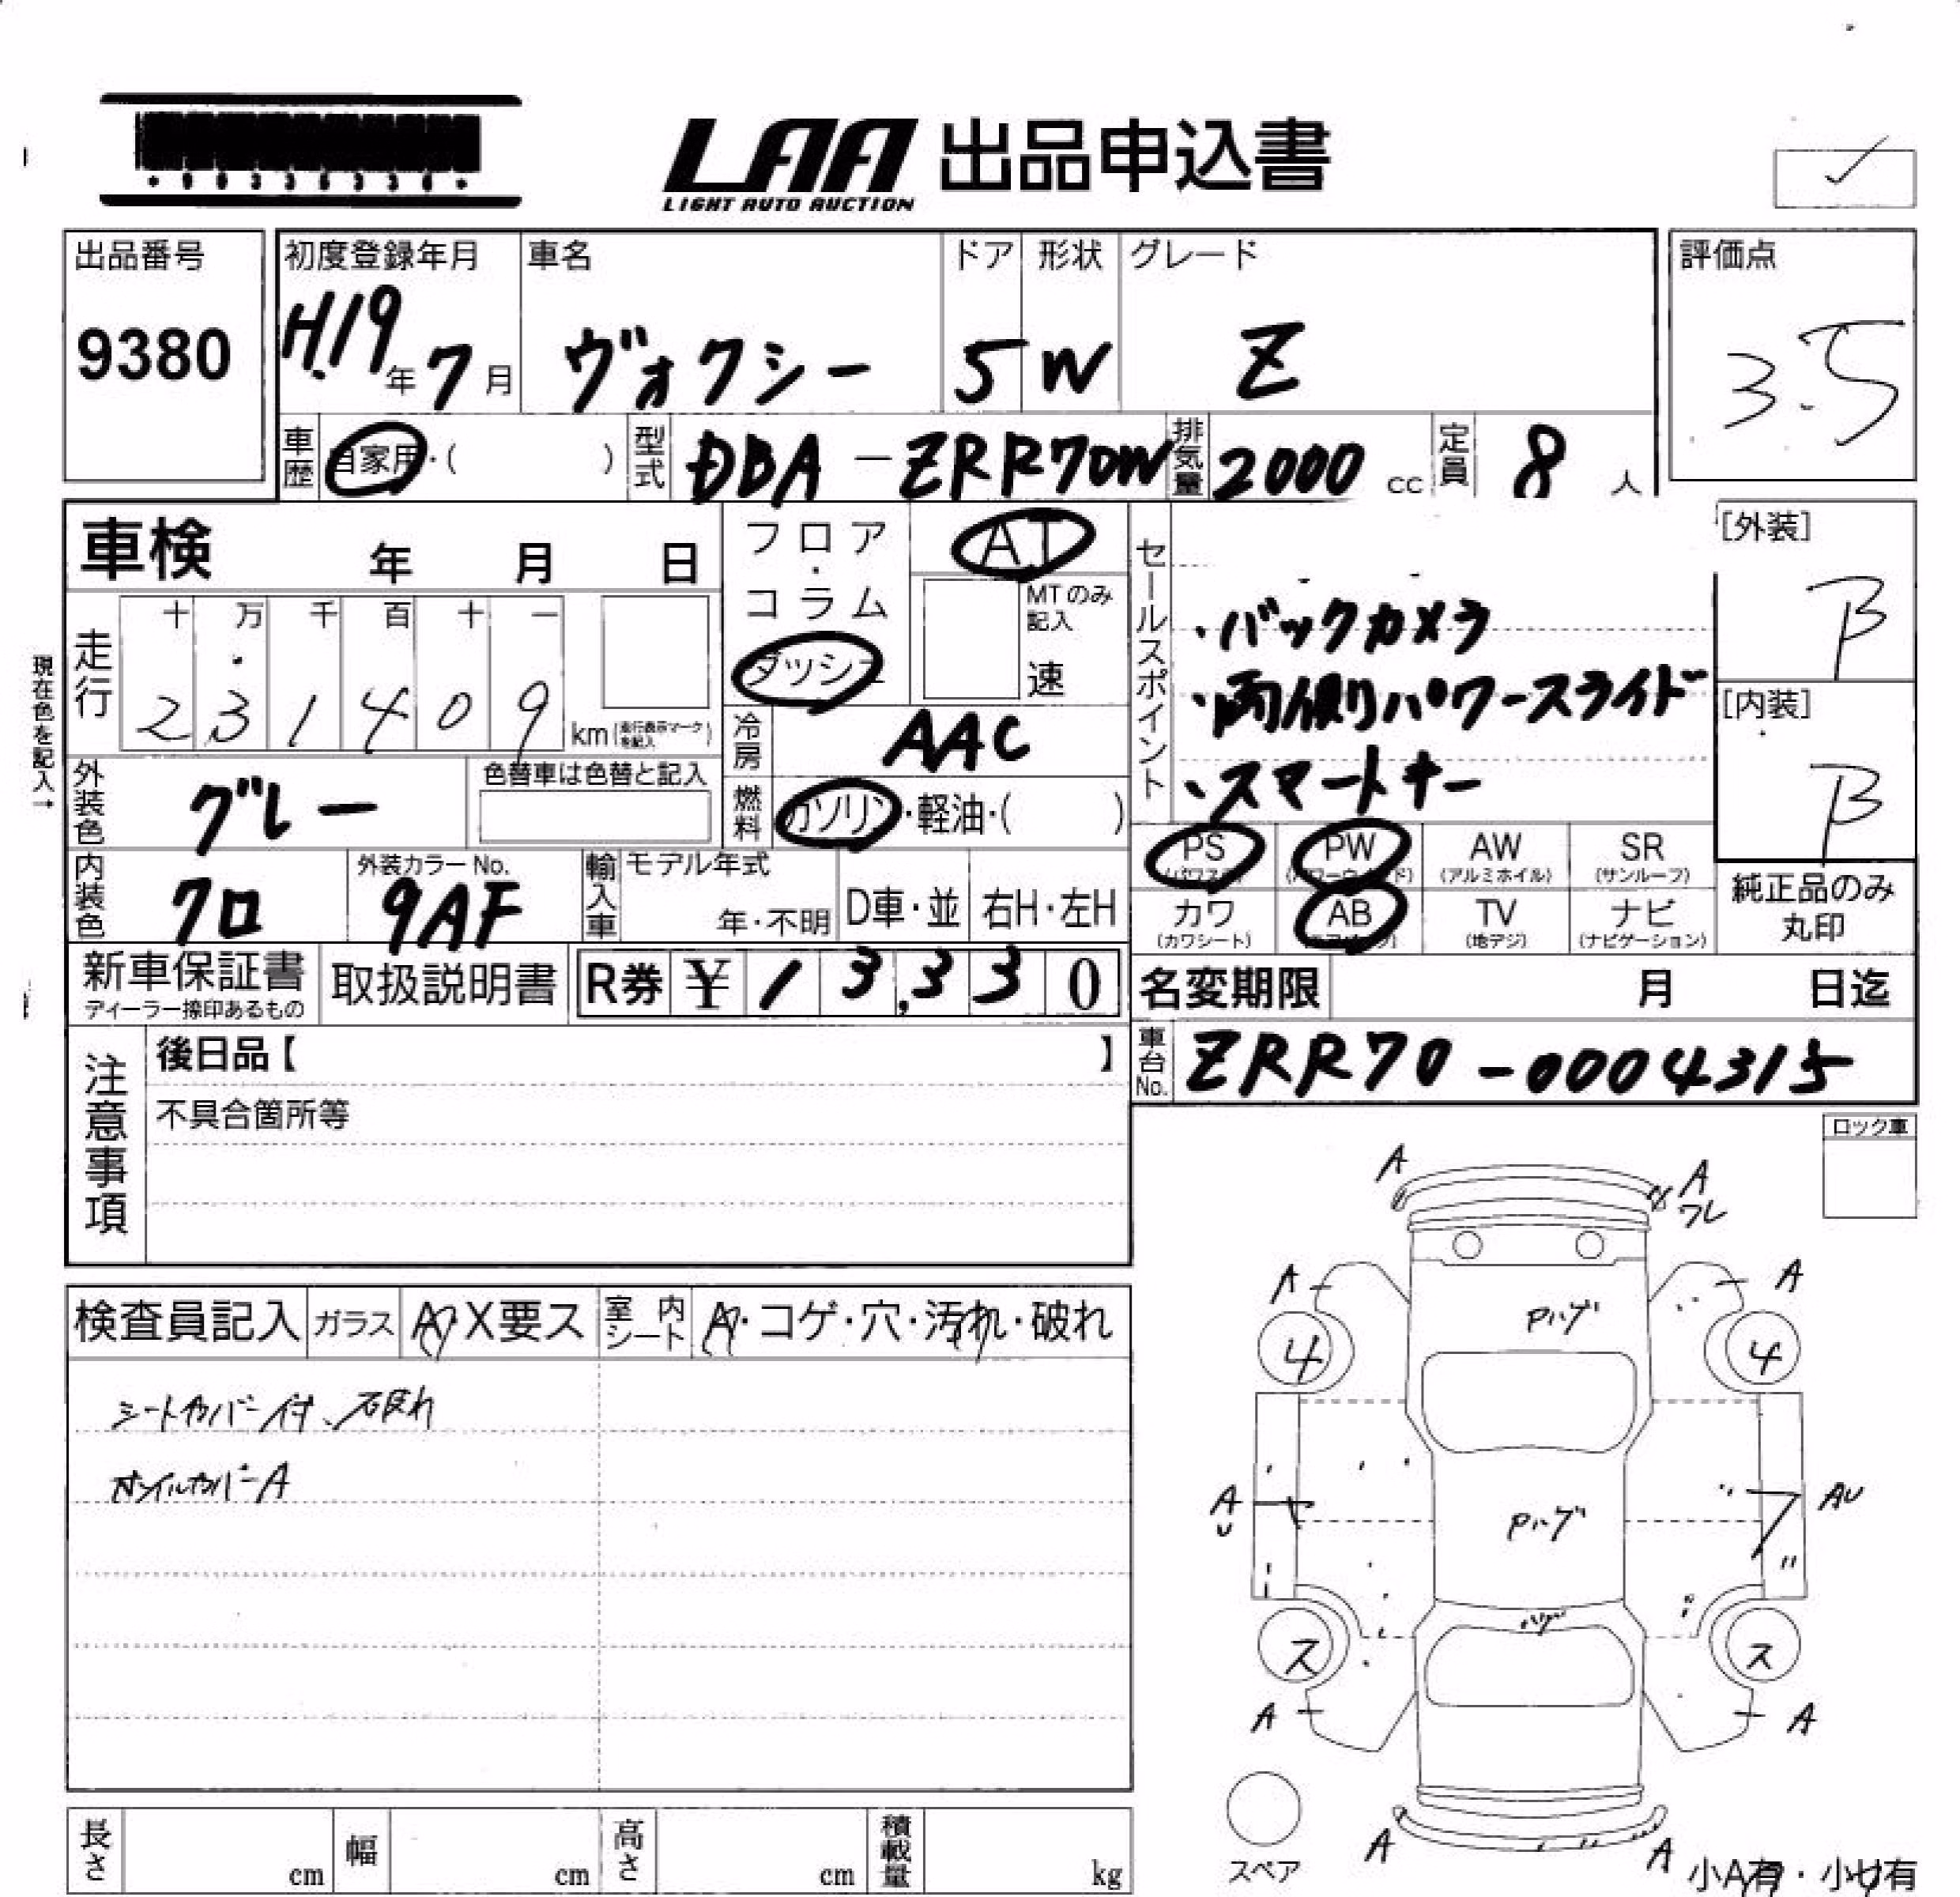 LAA 出品申込書
LIGHT AUTO AUCTION
出品番号
9380
初度登録年月
H.19年7月
車名
ヴォクシー
ドア
5
形状
W
グレード
Z
評価点
3.5
車歴
自家用・( )
型式
DBA-ZRR70W
排気量
2000 cc
定員
8人
車検 年 月 日
フロア・コラム
ダッシュ
AT
MTのみ記入
速
セールスポイント
・バックカメラ
・両側パワースライド
・スマートキー
[外装]
B
[内装]
B
現在色を記入→
走行
十 万 千 百 十 一
2 3 1 4 0 9
km(走行表示マークを記入)
冷房
AAC
外装色
グレー
色替車は色替と記入
燃料
ガソリン・軽油・( )
PS
(パワステ)
PW
(パワーウインド)
AW
(アルミホイル)
SR
(サンルーフ)
カワ
(カワシート)
AB
(エアバッグ)
TV
(地デジ)
ナビ
(ナビゲーション)
純正品のみ
丸印
内装色
クロ
外装カラーNo.
9AF
輸入車
モデル年式
年・不明
D車・並
右H・左H
新車保証書
ディーラー捺印あるもの
取扱説明書
R券 ¥ 13,330
名変期限 月 日迄
車台No.
ZRR70-0004315
注意事項
後日品【 】
不具合箇所等
ロック車
検査員記入
ガラス
A・X要ス
室内シート
A・コゲ・穴・汚れ・破れ
シートカバー付、
ホイルカバーA
A
A
ワレ
A
A
Pハゲ
4
4
A
U
Pハゲ
AU
ス
ス
A
A
スペア
A
A
小A有・小U有
長さ cm
幅 cm
高さ cm
積載量 kg